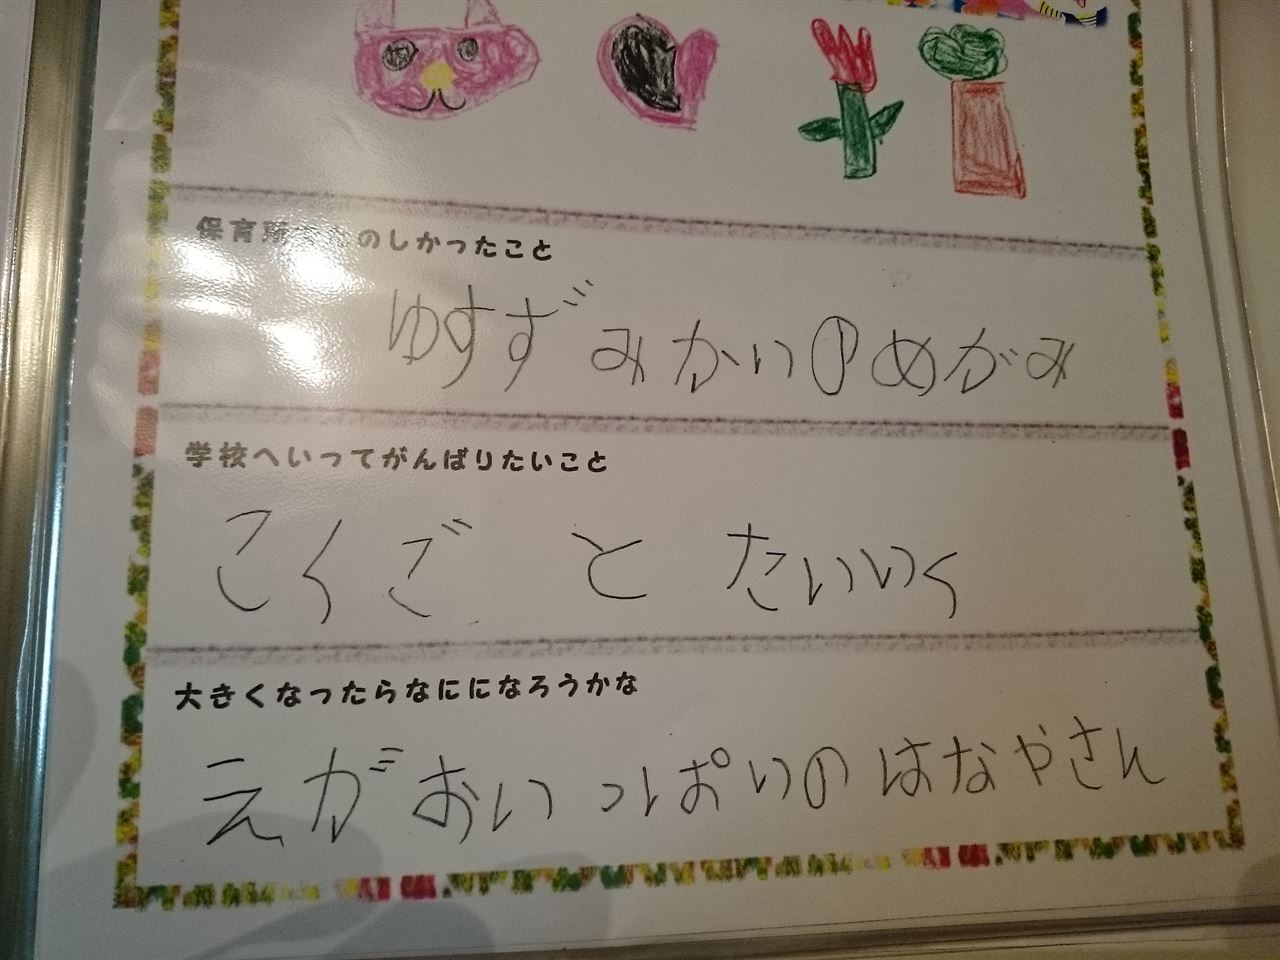 保育所でたのしかったこと
ゆすずみかいのめがみ
学校へいってがんばりたいこと
こくご と たいいく
大きくなったらなにになろうかな
えがおいっぱいのはなやさん